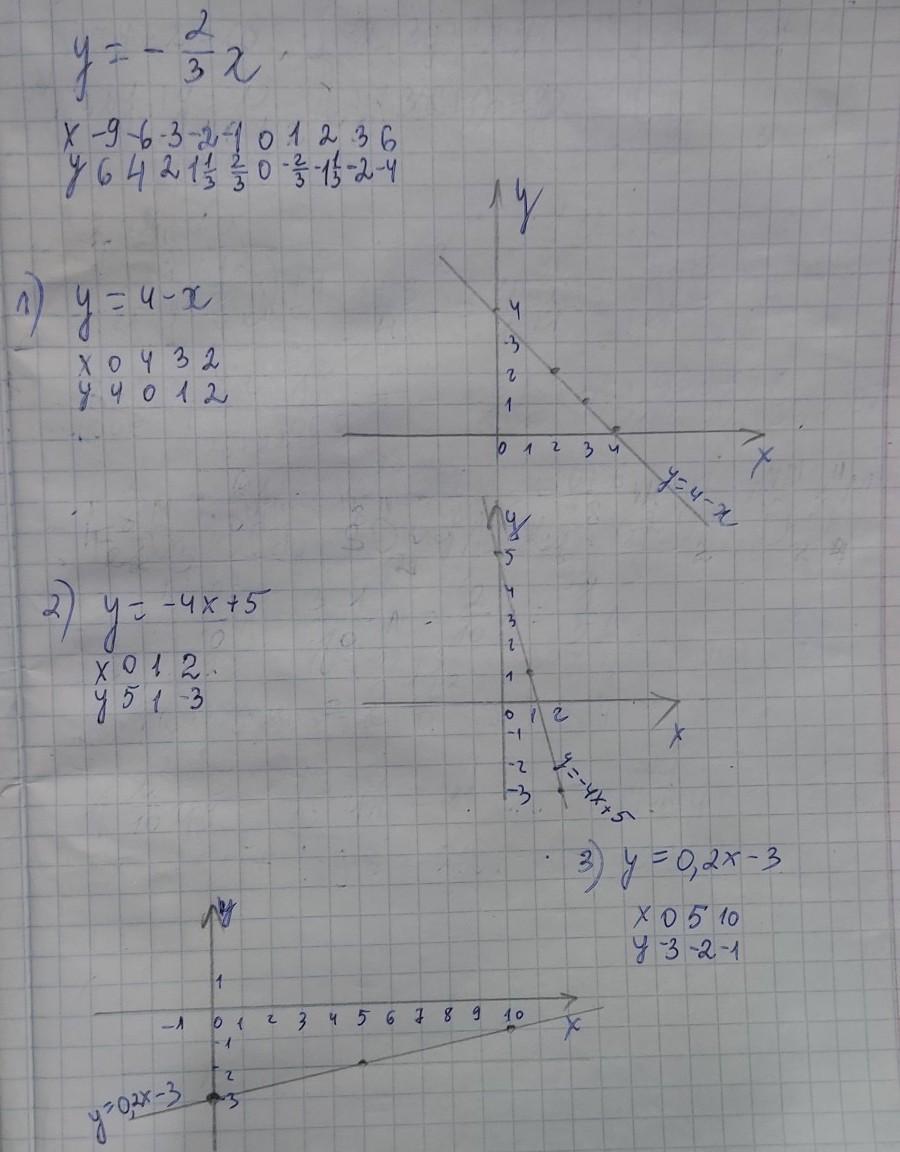 y = - 2/3 x
x -9 -6 -3 -2 -1 0 1 2 3 6
y 6 4 2 1 1/3 2/3 0 -2/3 -1 1/3 -2 -4
y
1) y = 4 - x
4
3
x 0 4 3 2
2
y 4 0 1 2
1
0 1 2 3 4
x
y = 4 - x
y
5
2) y = -4x+5
4
3
2
x 0 1 2
1
y 5 1 -3
0 1 2
-1
x
-2
-3
y = -4x+5
3) y = 0,2x-3
y
x 0 5 10
y -3 -2 -1
1
-1 0 1 2 3 4 5 6 7 8 9 10
x
-1
2
-3
y = 0,2x-3